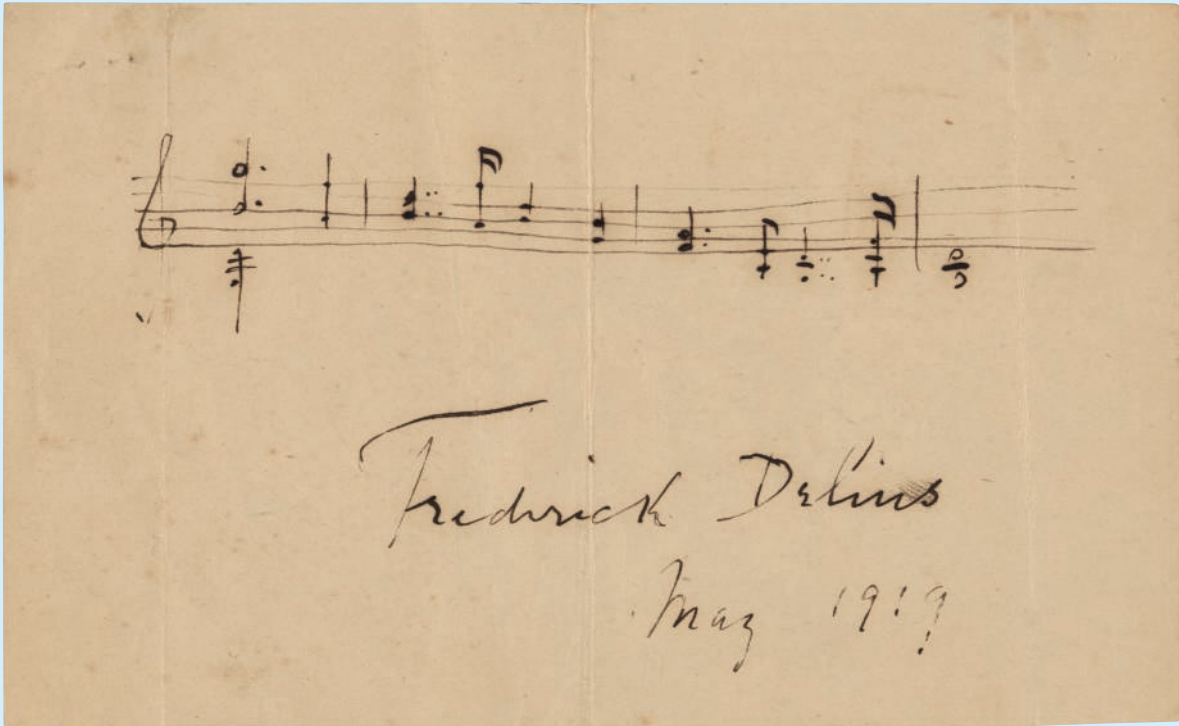 Frederick Delius
May 1919